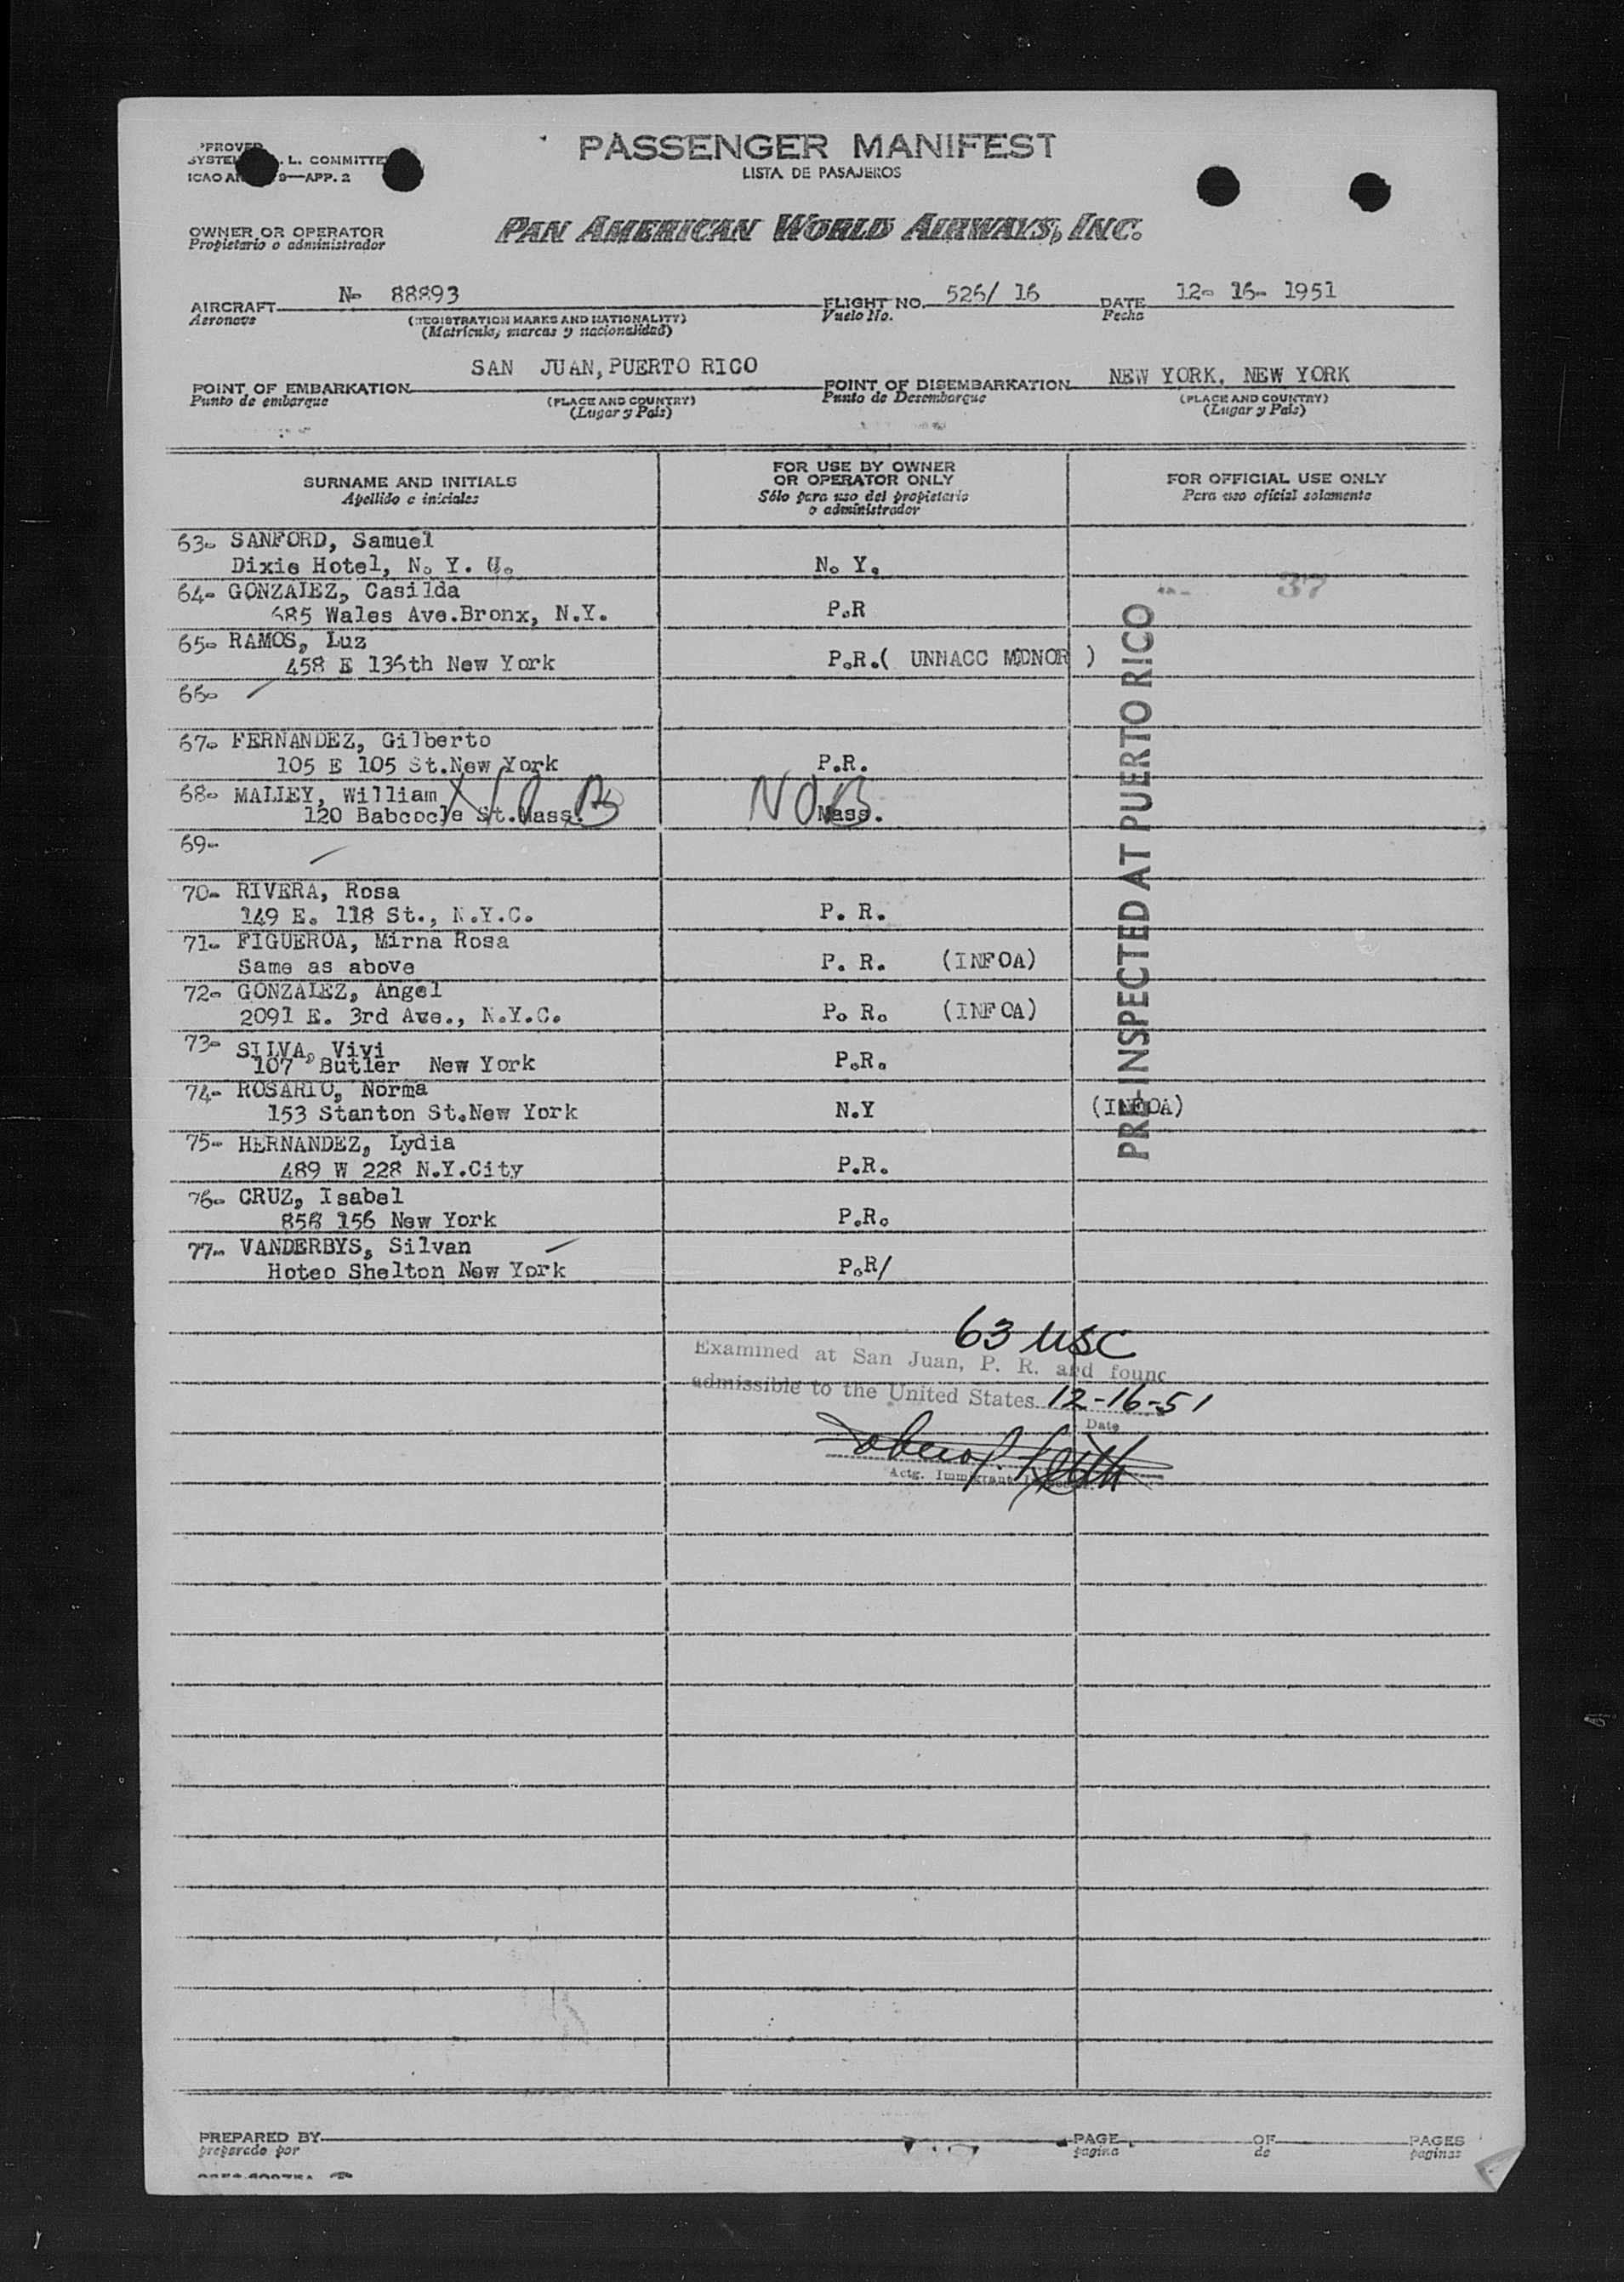 PASSENGER MANIFEST
LISTA DE PASAJEROS
L. COMMITTE
APP. 2
OWNER OR OPERATOR
Propietario o administrador
PAN AMERICAN WORLD AIRWAYS, INC.
AIRCRAFT N- 88893 FLIGHT NO. 526/ 16 DATE 12- 16- 1951
Aeronave (REGISTRATION MARKS AND NATIONALITY) Vuelo No. Fecha
(Matrícula, marcas y nacionalidad)
POINT OF EMBARKATION SAN JUAN, PUERTO RICO POINT OF DISEMBARKATION NEW YORK, NEW YORK
Punto de embarque (PLACE AND COUNTRY) Punto de Desembarque (PLACE AND COUNTRY)
(Lugar y País) (Lugar y País)
SURNAME AND INITIALS FOR USE BY OWNER OR OPERATOR ONLY FOR OFFICIAL USE ONLY
Apellido e iniciales Sólo para uso del propietario o administrador Para uso oficial solamente
63- SANFORD, Samuel
Dixie Hotel, N. Y. N. Y.
37
64- GONZALEZ, Casilda
685 Wales Ave.Bronx, N.Y. P.R
65- RAMOS, Luz
458 E 136th New York P.R.( UNNACC )
66-
67- FERNANDEZ, Gilberto
105 E 105 St.New York P.R.
68- MALLEY, William NOB NOB
120 St.Mass. Mass.
69-
70- RIVERA, Rosa
149 E. 118 St., N.Y.C. P. R.
71- FIGUEROA, Mirna Rosa
Same as above P. R. (INFOA)
72- GONZALEZ, Angel
2091 E. 3rd Ave., N.Y.C. P. R. (INFOA)
73- SILVA, Vivi
107 Butler New York P.R.
74- ROSARIO, Norma
153 Stanton St.New York N.Y (INFOA)
75- HERNANDEZ, Lydia
489 W 228 N.Y.City P.R.
76- CRUZ, Isabel
858 156 New York P.R.
77- VANDERBYS, Silvan
Hoteo Shelton New York P.R/
PRE-INSPECTED AT PUERTO RICO
63 USC
Examined at San Juan, P. R. and found
admissible to the United States 12-16-51
Date
Actg. Immigrant
PREPARED BY PAGE OF PAGES
preparado por pagina de paginas